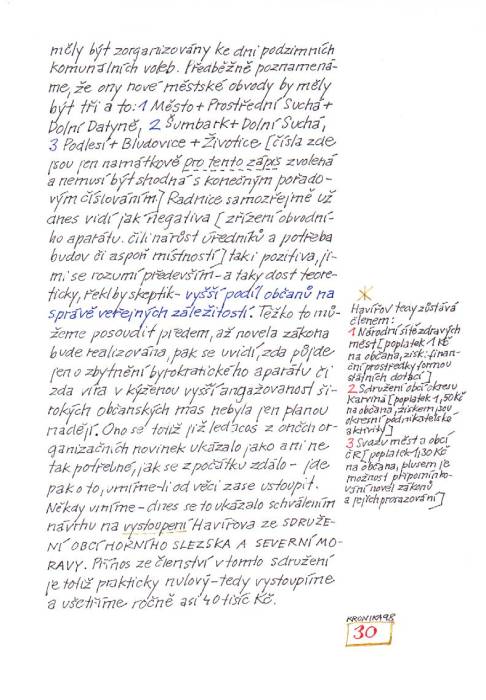 měly být zorganizovány ke dni podzimních
komunálních voleb. Předběžně poznamená-
me, že ony nové městské obvody by měly
být tři a to: 1 Město + Prostřední Suchá +
Dolní Datyně, 2 Šumbark + Dolní Suchá,
3 Podlesí + Bludovice + Životice [čísla zde
jsou jen namátkově pro tento zápis zvolená
a nemusí být shodná s konečným pořado-
vým číslováním] Radnice samozřejmě už
dnes vidí jak negativa [zřízení obvodní-
ho aparátu. čili nárůst úředníků a potřeba
budov či aspoň místností] tak i pozitiva, ji-
mi se rozumí především - a taky dost teore-
ticky, řekl by skeptik - vyšší podíl občanů na
správě veřejných záležitostí. Těžko to mů-
žeme posoudit předem, až novela zákona
bude realizována, pak se uvidí, zda půjde
jen o zbytnění byrokratického aparátu či
zda víra v kýženou vyšší angažovanost ši-
rokých občanských mas nebyla jen planou
nadějí. Ono se totiž již ledacos z oněch or-
ganizačních novinek ukázalo jako ani ne
tak potřebné, jak se z počátku zdálo - jde
pak o to, umíme-li od věci zase ustoupit.
Někdy umíme - dnes se to ukázalo schválením
návrhu na vystoupení Havířova ze SDRUŽE-
NÍ OBCÍ HORNÍHO SLEZSKA A SEVERNÍ MO-
RAVY. Přínos ze členství v tomto sdružení
je totiž prakticky nulový - tedy vystoupíme
a ušetříme ročně asi 40 tisíc Kč.
Havířov tedy zůstává
členem:
1 Národní sítě zdravých
měst [poplatek 1 Kč
na občana, zisk: finan-
ční prostředky formou
státních dotací]
2 Sdružení obcí okresu
Karviná [poplatek 1,50 Kč
na občana, ziskem jsou
okresní podnikatelské
aktivity]
3 Svazu měst a obcí
ČR [poplatek 1,30 Kč
na občana, plusem je
možnost připomínko-
vání novel zákonů
a jejich prosazování]
KRONIKA 98
30